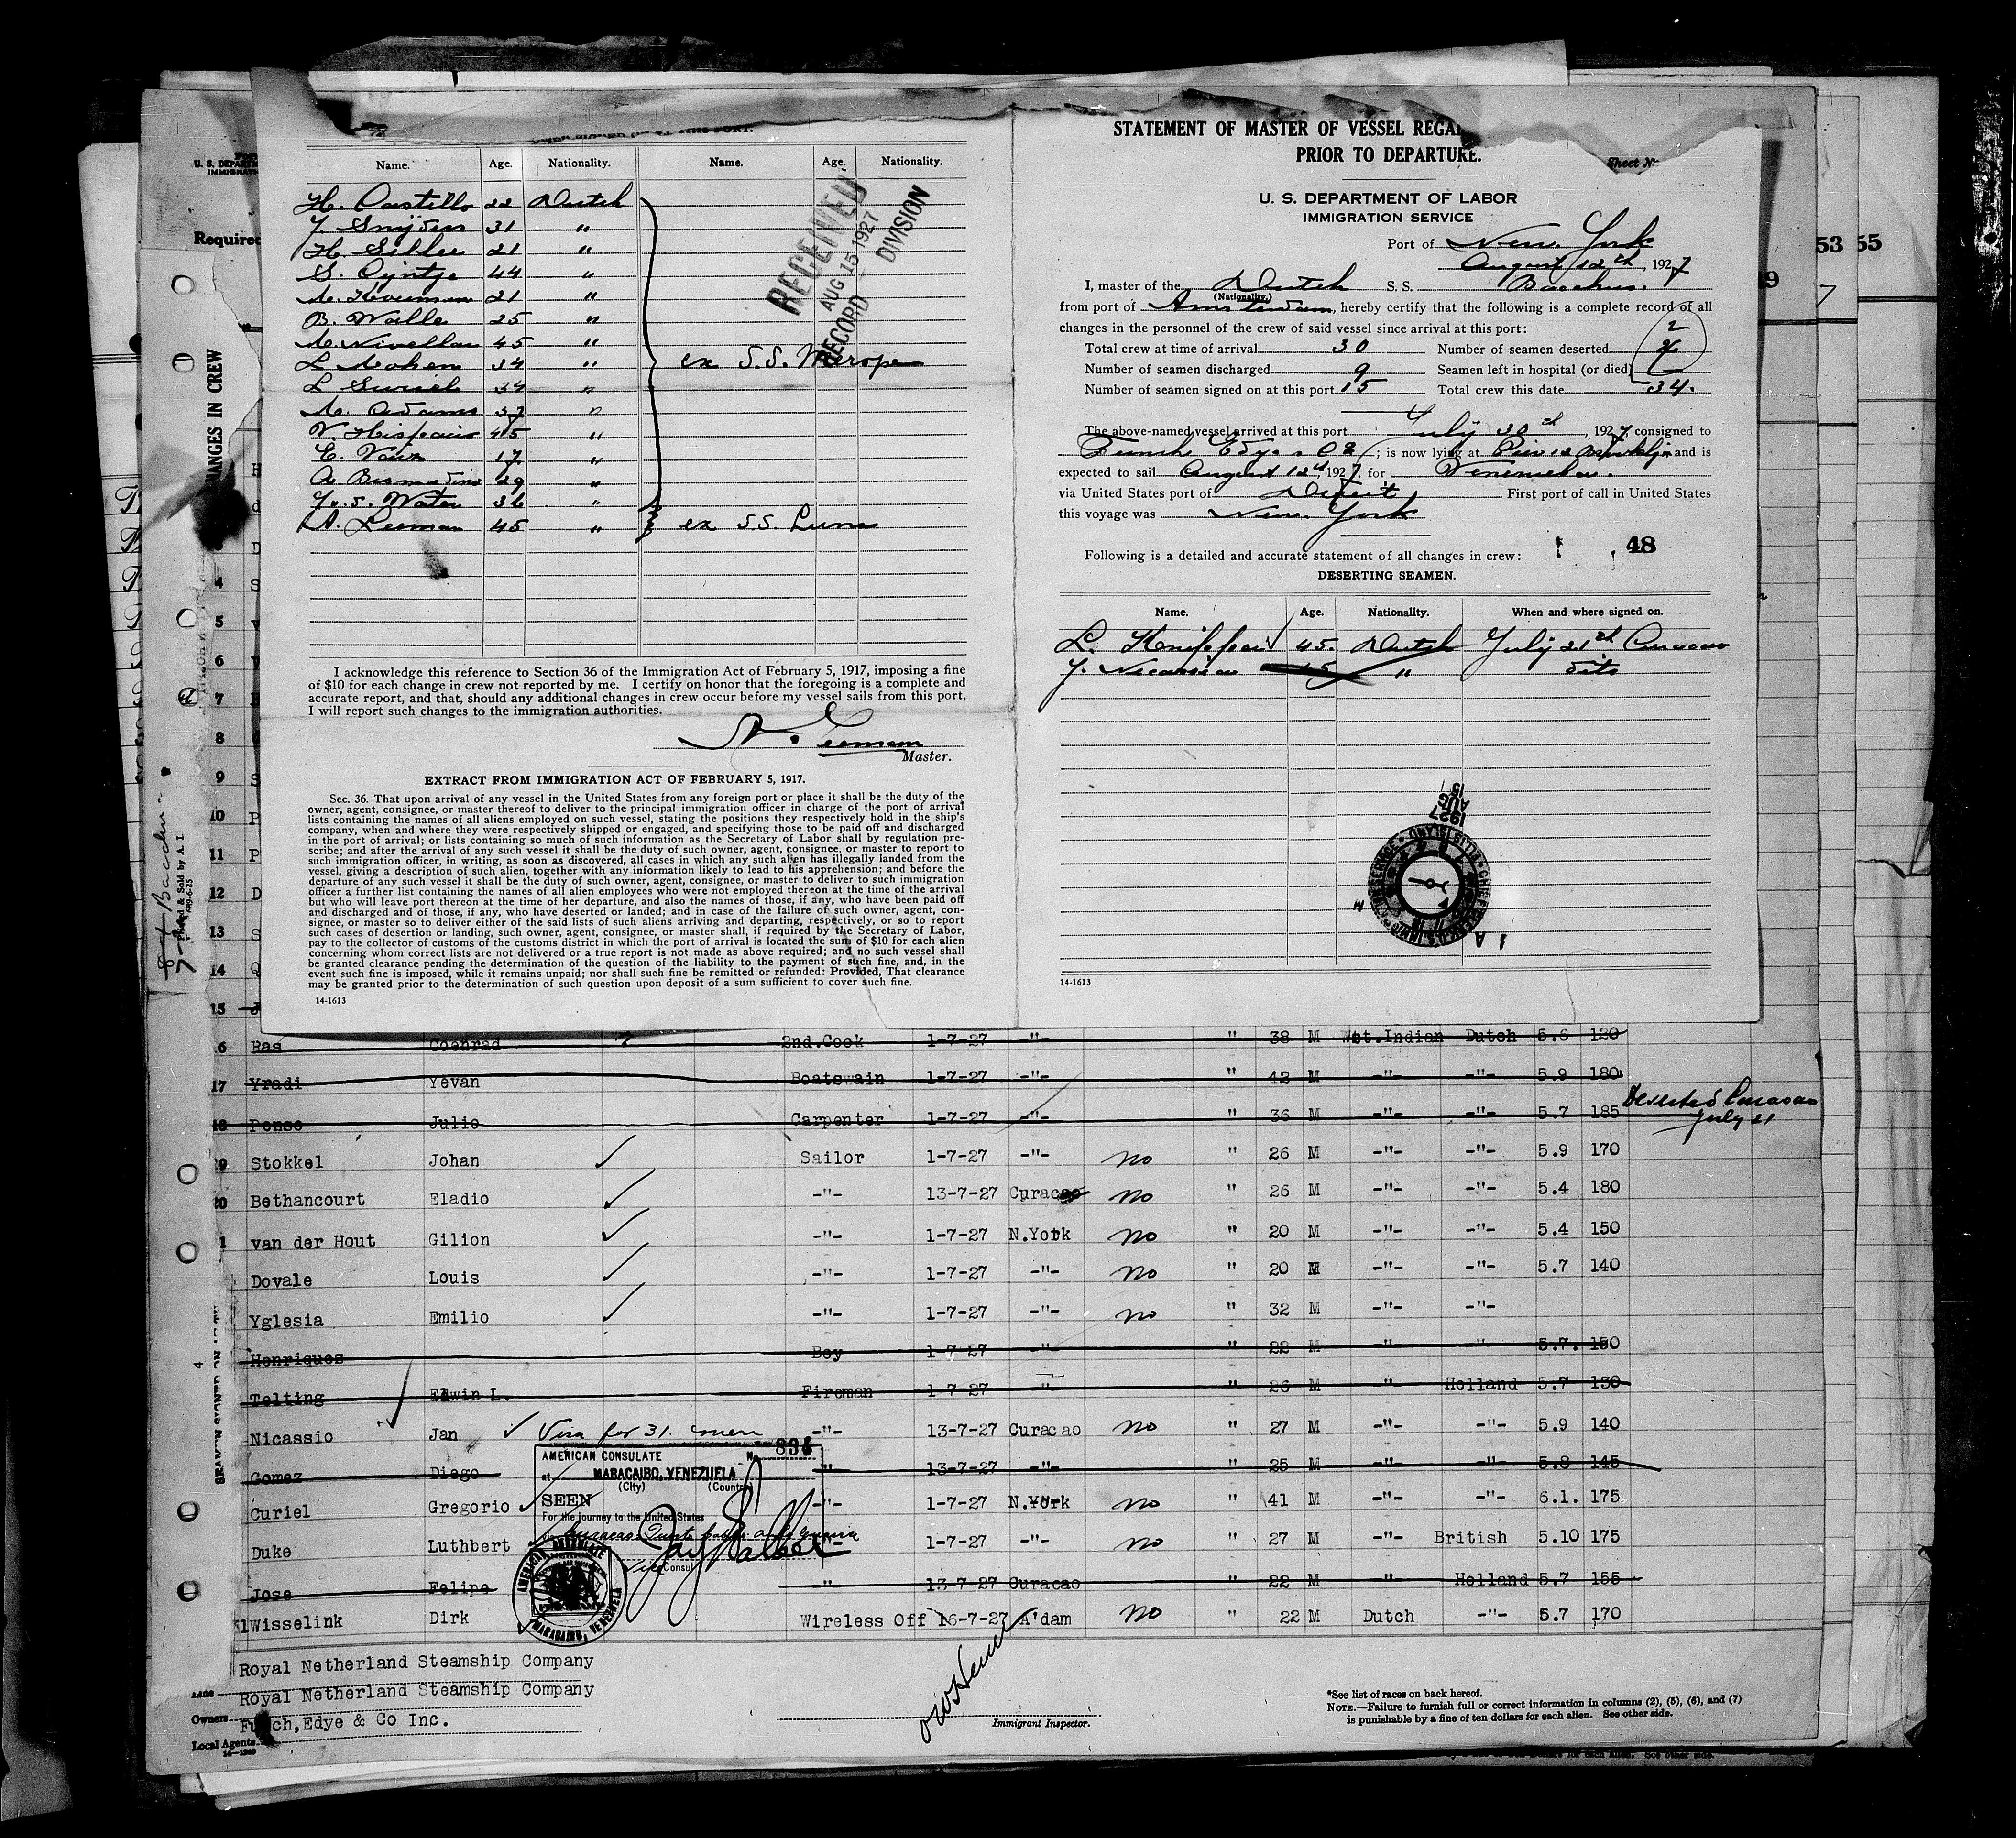 Name. Age. Nationality. Name. Age. Nationality.
H. Castillo 22 Dutch
31 "
21 "
S. 44 "
21 "
B. Walle 25 "
45 "
L 34 " ex S.S. Merope
L 34 "
A. Adams 37 "
45 "
17 "
29 "
36 "
A. Leeman 45 " ex S.S. Luna
RECEIVED
AUG 15 1927
RECORD DIVISION
I acknowledge this reference to Section 36 of the Immigration Act of February 5, 1917, imposing a fine
of $10 for each change in crew not reported by me. I certify on honor that the foregoing is a complete and
accurate report, and that, should any additional changes in crew occur before my vessel sails from this port,
I will report such changes to the immigration authorities.
A. Leeman
Master.
EXTRACT FROM IMMIGRATION ACT OF FEBRUARY 5, 1917.
Sec. 36. That upon arrival of any vessel in the United States from any foreign port or place it shall be the duty of the
owner, agent, consignee, or master thereof to deliver to the principal immigration officer in charge of the port of arrival
lists containing the names of all aliens employed on such vessel, stating the positions they respectively hold in the ship's
company, when and where they were respectively shipped or engaged, and specifying those to be paid off and discharged
in the port of arrival; or lists containing so much of such information as the Secretary of Labor shall by regulation pre-
scribe; and after the arrival of any such vessel it shall be the duty of such owner, agent, consignee, or master to report to
such immigration officer, in writing, as soon as discovered, all cases in which any such alien has illegally landed from the
vessel, giving a description of such alien, together with any information likely to lead to his apprehension; and before the
departure of any such vessel it shall be the duty of such owner, agent, consignee, or master to deliver to such immigration
officer a further list containing the names of all alien employees who were not employed thereon at the time of the arrival
but who will leave port thereon at the time of her departure, and also the names of those, if any, who have been paid off
and discharged and of those, if any, who have deserted or landed; and in case of the failure of such owner, agent, con-
signee, or master so to deliver either of the said lists of such aliens arriving and departing, respectively, or so to report
such cases of desertion or landing, such owner, agent, consignee, or master shall, if required by the Secretary of Labor,
pay to the collector of customs of the customs district in which the port of arrival is located the sum of $10 for each alien
concerning whom correct lists are not delivered or a true report is not made as above required; and no such vessel shall
be granted clearance pending the determination of the question of the liability to the payment of such fine, and, in the
event such fine is imposed, while it remains unpaid; nor shall such fine be remitted or refunded: Provided, That clearance
may be granted prior to the determination of such question upon deposit of a sum sufficient to cover such fine.
14-1613
STATEMENT OF MASTER OF VESSEL REGA
PRIOR TO DEPARTURE.
U. S. DEPARTMENT OF LABOR
IMMIGRATION SERVICE
Port of New York
August 12th, 1927
I, master of the Dutch S. S. Bacchus.
(Nationality.)
from port of Amsterdam, hereby certify that the following is a complete record of all
changes in the personnel of the crew of said vessel since arrival at this port:
Total crew at time of arrival 30 Number of seamen deserted 2
Number of seamen discharged 9 Seamen left in hospital (or died) —
Number of seamen signed on at this port 15 Total crew this date 34.
The above-named vessel arrived at this port July 30th, 1927, consigned to
Funch Edye & Co; is now lying at Pier 12 Brooklyn and is
expected to sail August 12th 1927. for Venezuela.
via United States port of Direct First port of call in United States
this voyage was New York
48
Following is a detailed and accurate statement of all changes in crew:
DESERTING SEAMEN.
Name. Age. Nationality. When and where signed on.
L. 45. Dutch July 21th Curacao
J. Nicassio " dito
1927
AUG
15
14-1613
Sheet N
U. S. DEPARTM
IMMIGRAT
Required
HANGES IN CREW
53 55
9
7
4
5
6
7
8
9
10
11
12
13
14
15
6 Ras Coenrad 2nd.Cook 1-7-27 -"- " 38 M Wst.Indian Dutch 5.6 120
17 Yradi Yevan Boatswain 1-7-27 -"- " 42 M -"- -"- 5.9 180
18 Penso Julio Carpenter 1-7-27 -"- " 36 M -"- -"- 5.7 185 Deserted Curacao
July 21
19 Stokkel Johan Sailor 1-7-27 -"- no " 26 M -"- -"- 5.9 170
20 Bethancourt Eladio -"- 13-7-27 Curacao no " 26 M -"- -"- 5.4 180
1 van der Hout Gilion -"- 1-7-27 N.York no " 20 M -"- -"- 5.4 150
Dovale Louis -"- 1-7-27 -"- no " 20 M -"- -"- 5.7 140
Yglesia Emilio -"- 1-7-27 -"- no " 32 M -"- -"-
Henriquez Boy 1-7-27 -"- " 22 M -"- " 5.7. 150
Telting Edwin L. Fireman 1-7-27 -"- " 26 M -"- Holland 5.7 130
Nicassio Jan Visa for 31. men -"- 13-7-27 Curacao no " 27 M -"- -"- 5.9 140
Gomez Diego " 13-7-27 -"- " 25 M -"- -"- 5.8 145
Curiel Gregorio -"- 1-7-27 N.York no " 41 M -"- -"- 6.1. 175
Duke Luthbert 1-7-27 -"- no " 27 M -"- British 5.10 175
Jose Felipe -"- 13-7-27 Curacao " 22 M " Holland 5.7 155
31 Wisselink Dirk Wireless Off 16-7-27 A'dam no " 22 M Dutch -"- 5.7 170
AMERICAN CONSULATE No. 836
at MARACAIBO, VENEZUELA
(City) (Country)
SEEN
For the journey to the United States
Vice Consul
AMERICAN CONSULATE
MARACAIBO, VENEZUELA
Royal Netherland Steamship Company
Royal Netherland Steamship Company
Owners
Funch,Edye & Co Inc.
Local Agents
14—1240
Immigrant Inspector.
*See list of races on back hereof.
NOTE.—Failure to furnish full or correct information in columns (2), (5), (6), and (7)
is punishable by a fine of ten dollars for each alien. See other side.